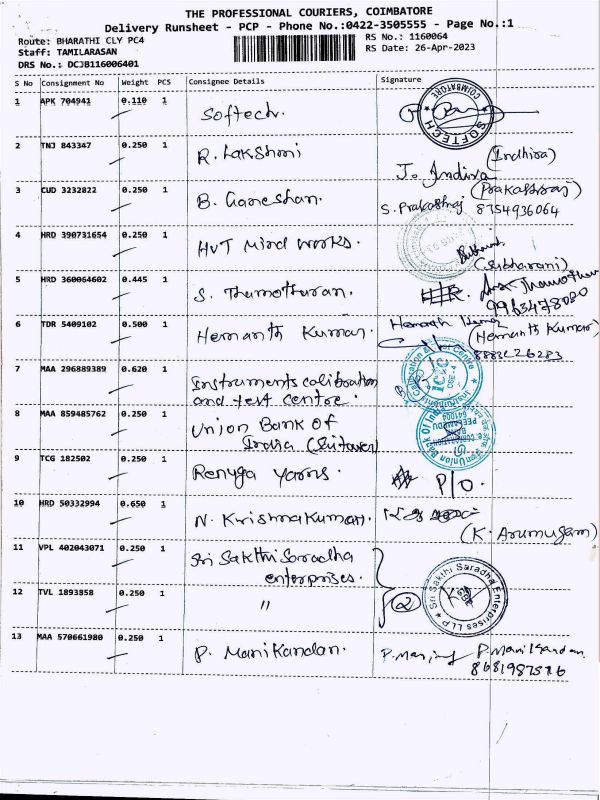 THE PROFESSIONAL COURIERS, COIMBATORE
Delivery Runsheet - PCP - Phone No.:0422-3505555 - Page No.:1
Route: BHARATHI CLY PC4
Staff: TAMILARASAN
DRS No.: DCJB116006401
RS No.: 1160064
RS Date: 26-Apr-2023
S No Consignment No Weight PCS Consignee Details Signature
1 APK 704941 0.110 1 Softech. COIMBATORE SOFTECH
2 TNJ 843347 0.250 1 R. Lakshmi J. Indira (Indhira)
3 CUD 3232822 0.250 1 B. Ganeshan. S. Prakashraj (Prakashraj) 8754936064
4 HRD 390731654 0.250 1 HVT Mind Works. (Subharani)
5 HRD 360064602 0.445 1 S. Thamotharan. 9963478080
6 TDR 5409102 0.500 1 Hemanth Kumar. Hemanth Kumar (Hemanth Kumar)
7 MAA 296889389 0.620 1 Instruments calibration
and test centre.
8 MAA 859485762 0.250 1 Union Bank Of
India
9 TCG 182502 0.250 1 Renuga yarns. P/O.
10 HRD 50332994 0.650 1 N. Krishnakumar. (K. Arumugam)
11 VPL 402043071 0.250 1 Sri Sakthi Saradha
enterprises.
12 TVL 1893858 0.250 1 " 2 Sri Sakthi Saradha Enterprises LLP
13 MAA 570661980 0.250 1 P. Manikandan. P. Manikandan